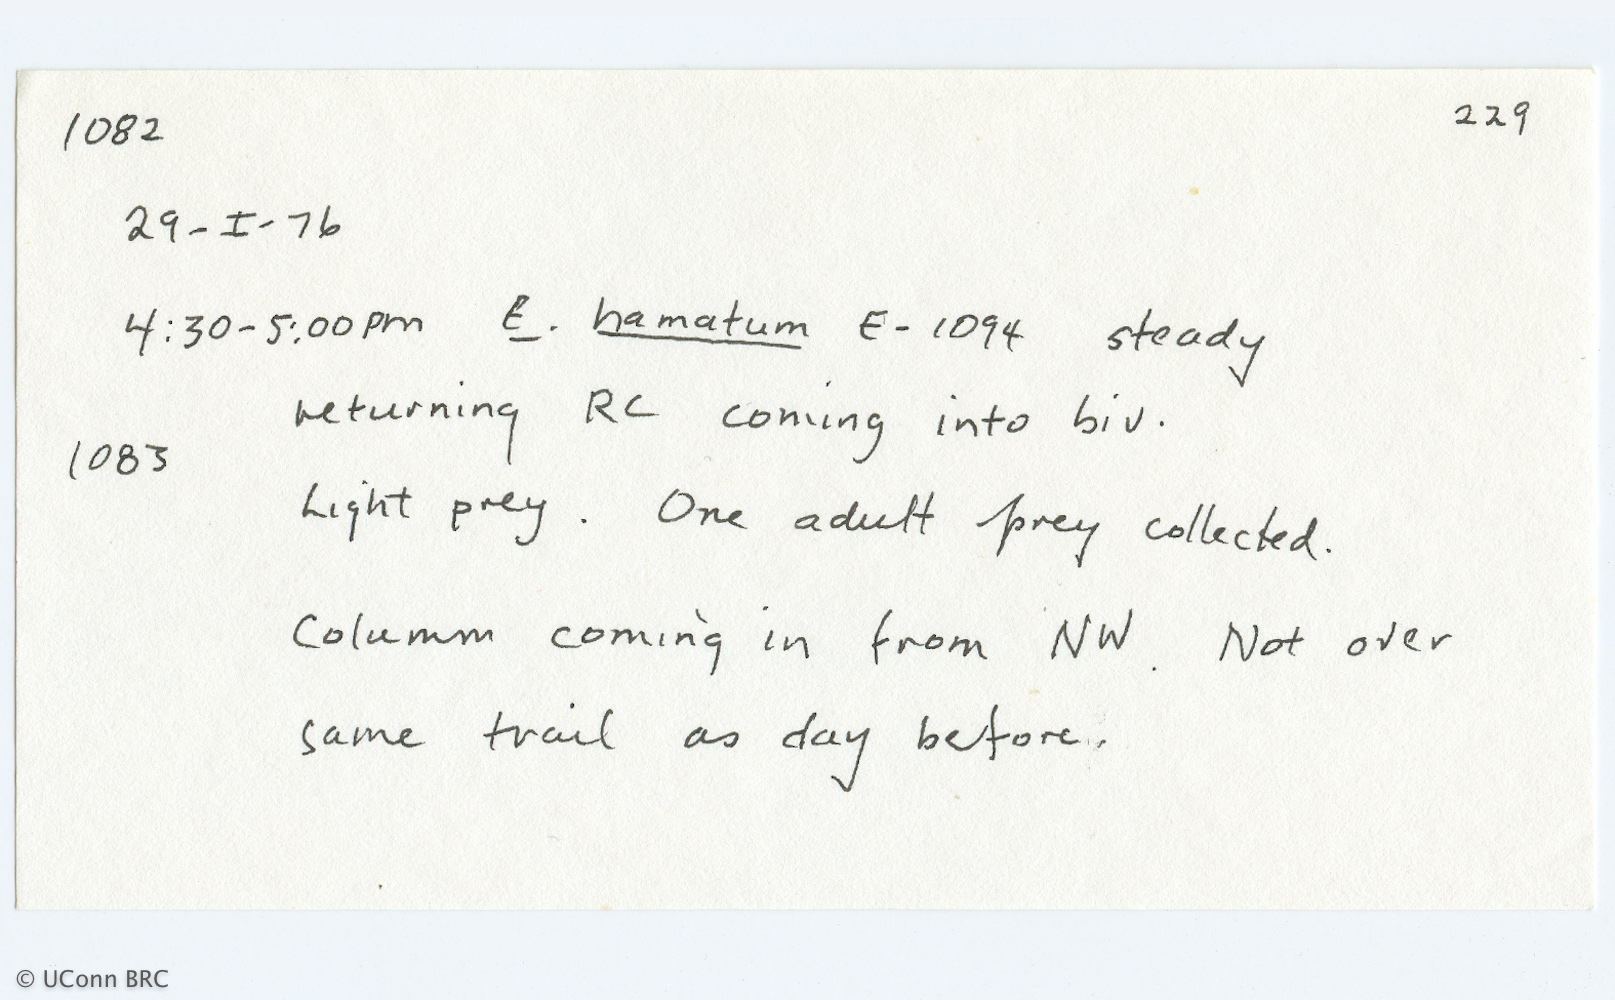 1082 229
29-I-76
4:30-5:00pm E. hamatum E-1094 steady
returning RC coming into biv.
1083
Light prey. One adult prey collected.
Column coming in from NW. Not over
same trail as day before.
© UConn BRC